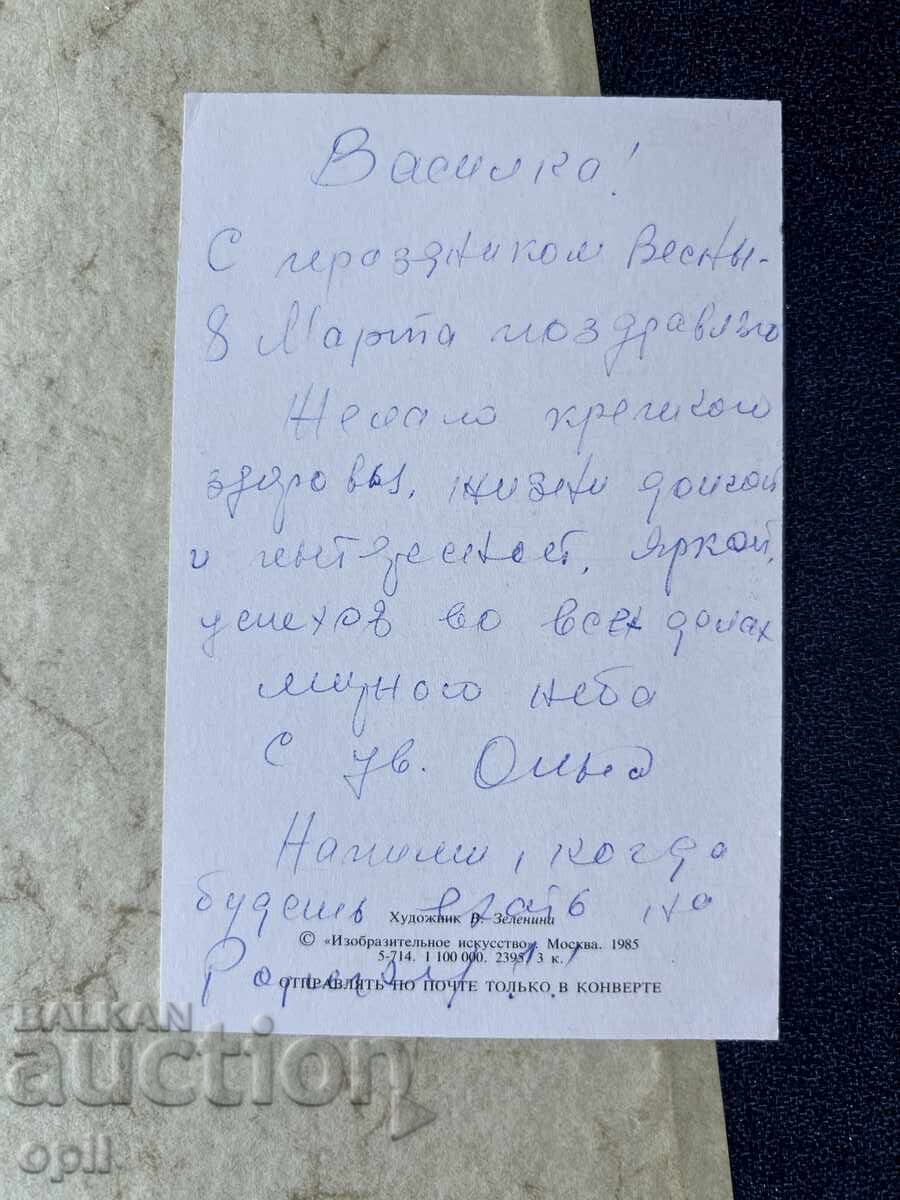 Василка!
С праздником Весны -
8 Марта поздравляю
Желаю крепкого
здоровья, жизни долгой
и интересной, яркой,
успехов во всех делах
мирного неба
С ув. Ольга
Напиши, когда
будешь ехать на
Художник В. Зеленина
© «Изобразительное искусство». Москва. 1985
5-714. 1 100 000. 2395. 3 к.
ОТПРАВЛЯТЬ ПО ПОЧТЕ ТОЛЬКО В КОНВЕРТЕ
BALKAN
auction
opil